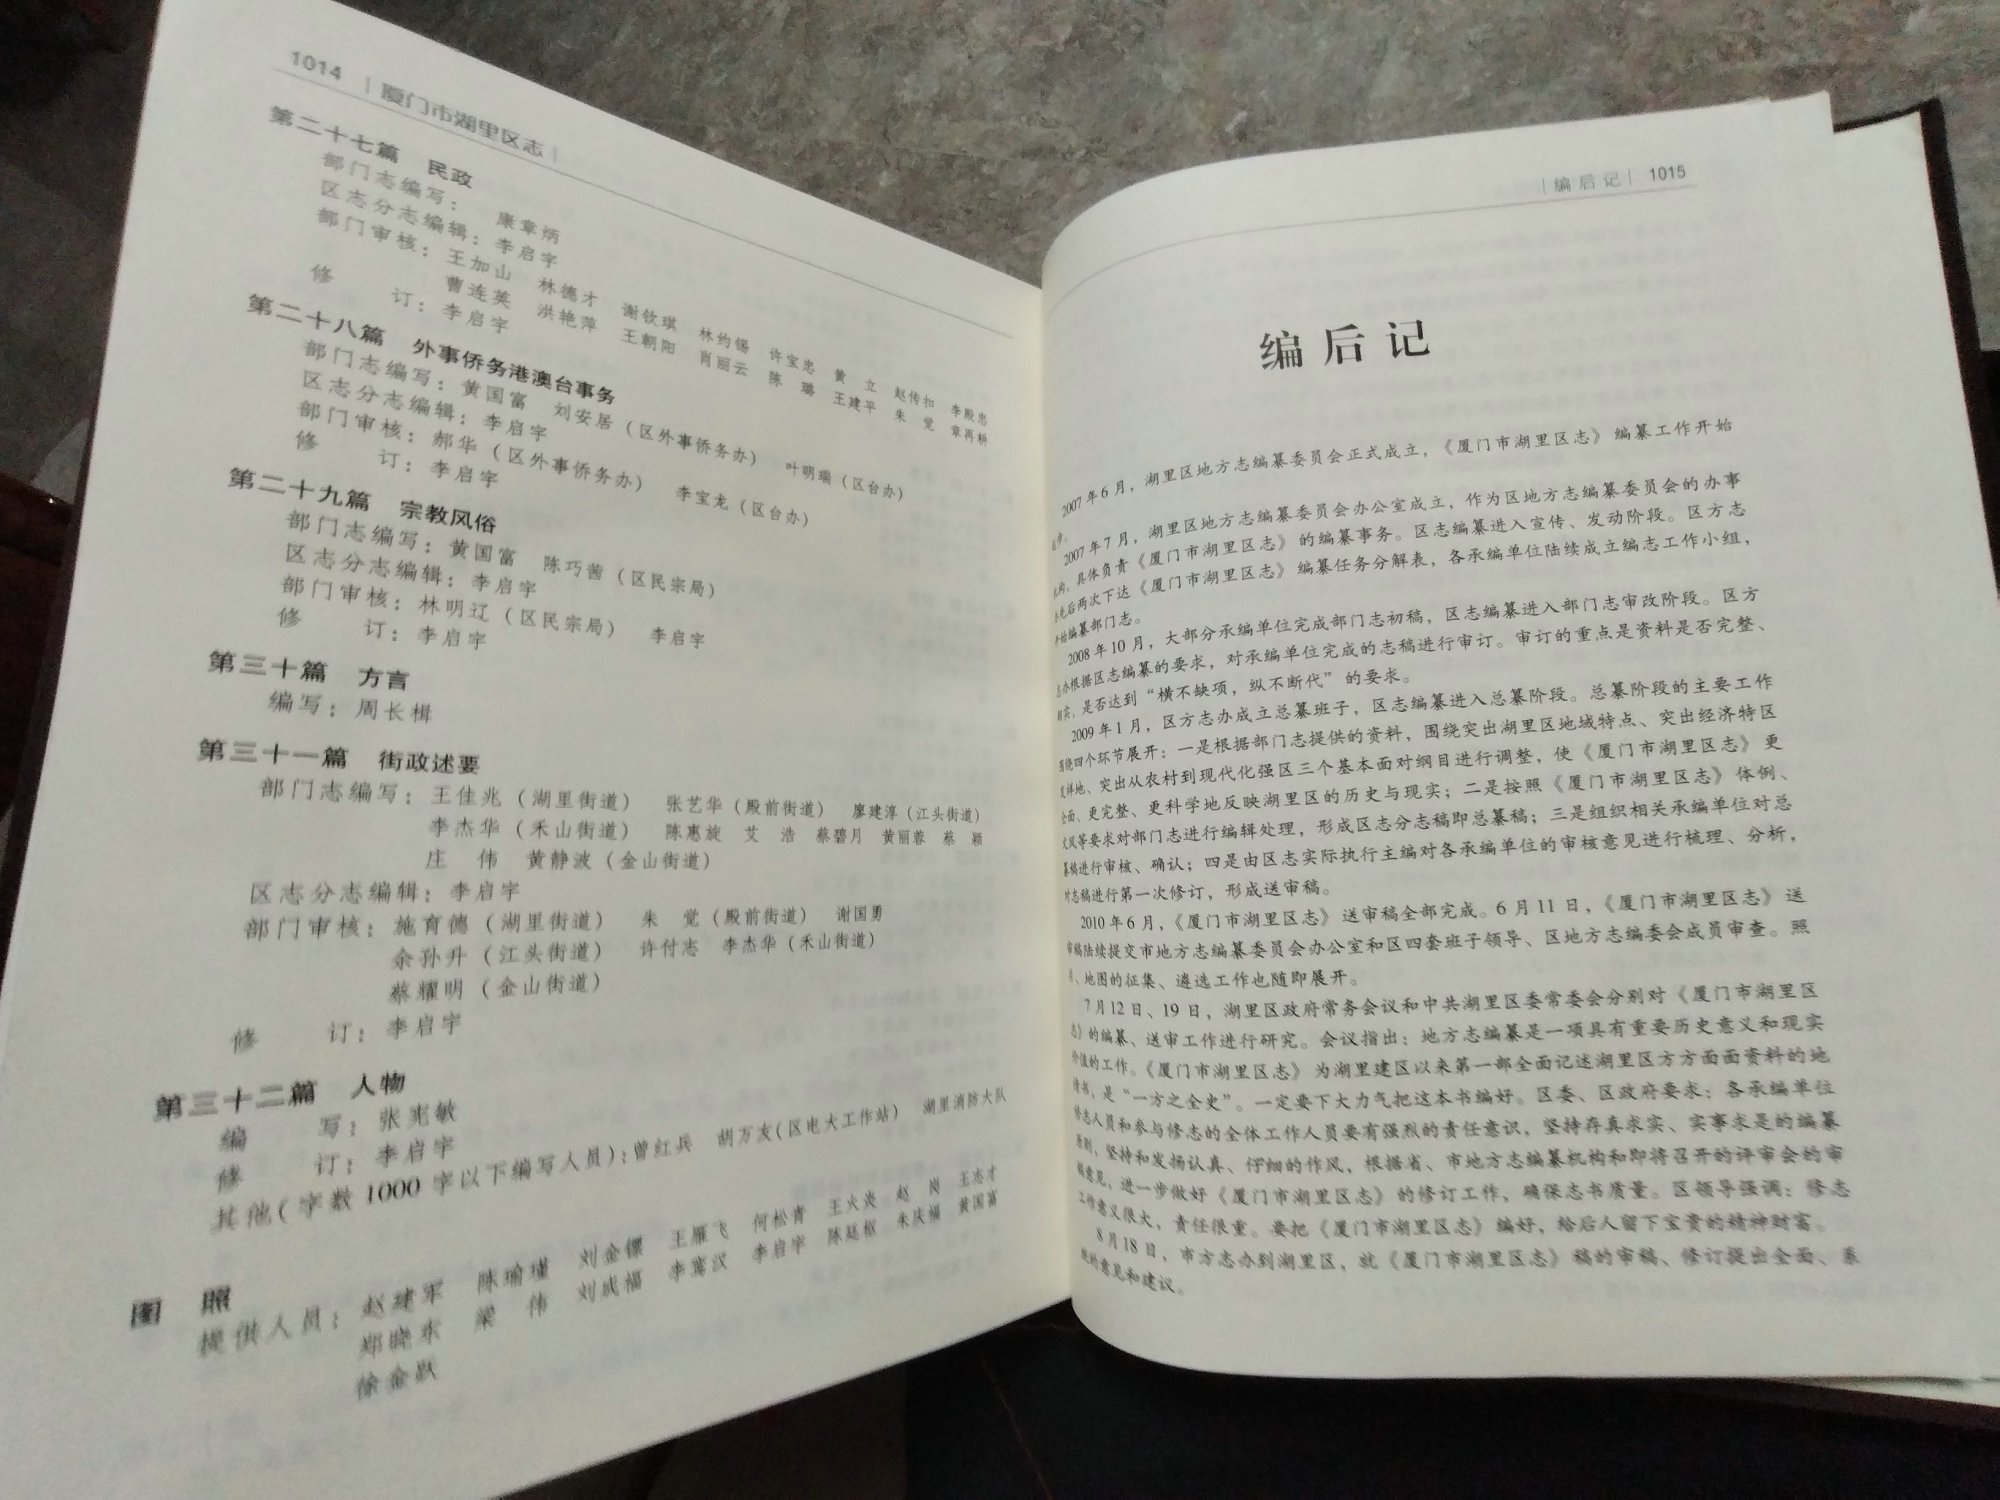 1014 | 厦门市湖里区志 |
第二十七篇 民政
部门志编写： 康章炳
区志分志编辑：李启宇
部门审核：王加山 林德才 谢钦琪 林约锡 许宝忠 黄 立 赵传扣 李殿忠
曹连英 洪艳萍 王朝阳 肖丽云 陈 璐 王建平 朱 觉 章再耕
修 订：李启宇
第二十八篇 外事侨务港澳台事务
部门志编写：黄国富 刘安居（区外事侨务办） 叶明瑞（区台办）
区志分志编辑：李启宇
部门审核：郝华（区外事侨务办） 李宝龙（区台办）
修 订：李启宇
第二十九篇 宗教风俗
部门志编写：黄国富 陈巧茜（区民宗局）
区志分志编辑：李启宇
部门审核：林明辽（区民宗局） 李启宇
修 订：李启宇
第三十篇 方言
编写：周长楫
第三十一篇 街政述要
部门志编写：王佳兆（湖里街道） 张艺华（殿前街道） 廖建淳（江头街道）
李杰华（禾山街道） 陈惠旋 艾 浩 蔡碧月 黄丽蓉 蔡 颖
庄 伟 黄静波（金山街道）
区志分志编辑：李启宇
部门审核：施育德（湖里街道） 朱 觉（殿前街道） 谢国勇
余孙升（江头街道） 许付志 李杰华（禾山街道）
蔡耀明（金山街道）
修 订：李启宇
第三十二篇 人物
编 写：张宪敏
修 订：李启宇
其他（字数1000字以下编写人员）：曾红兵 胡万友（区电大工作站） 湖里消防大队
图 照
提供人员：赵建军 陈瑜瑾 刘金镖 王雁飞 何松青 王火炎 赵 岗 王志才
郑晓东 梁 伟 刘成福 李骞汉 李启宇 陈延枢 朱庆福 黄国富
徐金跃
| 编后记 | 1015
编后记
2007年6月，湖里区地方志编纂委员会正式成立，《厦门市湖里区志》编纂工作开始
2007年7月，湖里区地方志编纂委员会办公室成立，作为区地方志编纂委员会的办事
机构，具体负责《厦门市湖里区志》的编纂事务。区志编纂进入宣传、发动阶段。区方志
先后两次下达《厦门市湖里区志》编纂任务分解表，各承编单位陆续成立编志工作小组，
开始编纂部门志。
2008年10月，大部分承编单位完成部门志初稿，区志编纂进入部门志审改阶段。区方
志办根据区志编纂的要求，对承编单位完成的志稿进行审订。审订的重点是资料是否完整、
翔实，是否达到“横不缺项，纵不断代”的要求。
2009年1月，区方志办成立总纂班子，区志编纂进入总纂阶段。总纂阶段的主要工作
围绕四个环节展开：一是根据部门志提供的资料，围绕突出湖里区地域特点、突出经济特区
发祥地、突出从农村到现代化强区三个基本面对纲目进行调整，使《厦门市湖里区志》更
全面、更完整、更科学地反映湖里区的历史与现实；二是按照《厦门市湖里区志》体例、
文风等要求对部门志进行编辑处理，形成区志分志稿即总纂稿；三是组织相关承编单位对总
纂稿进行审核、确认；四是由区志实际执行主编对各承编单位的审核意见进行梳理、分析，
对志稿进行第一次修订，形成送审稿。
2010年6月，《厦门市湖里区志》送审稿全部完成。6月11日，《厦门市湖里区志》送
审稿陆续提交市地方志编纂委员会办公室和区四套班子领导、区地方志编委会成员审查。照
片、地图的征集、遴选工作也随即展开。
7月12日、19日，湖里区政府常务会议和中共湖里区委常委会分别对《厦门市湖里区
志》的编纂、送审工作进行研究。会议指出：地方志编纂是一项具有重要历史意义和现实
价值的工作。《厦门市湖里区志》为湖里建区以来第一部全面记述湖里区方方面面资料的地
情书，是“一方之全史”。一定要下大力气把这本书编好。区委、区政府要求：各承编单位
修志人员和参与修志的全体工作人员要有强烈的责任意识，坚持存真求实、实事求是的编纂
原则，坚持和发扬认真、仔细的作风，根据省、市地方志编纂机构和即将召开的评审会的审
稿意见，进一步做好《厦门市湖里区志》的修订工作，确保志书质量。区领导强调：修志
工作意义很大，责任很重。要把《厦门市湖里区志》编好，给后人留下宝贵的精神财富。
8月18日，市方志办到湖里区，就《厦门市湖里区志》稿的审稿、修订提出全面、系
统的意见和建议。